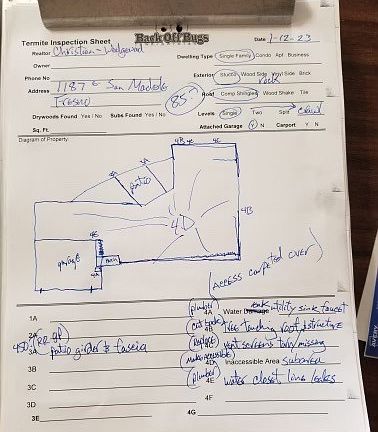 Back Off Bugs
Termite Inspection Sheet
Date 1-12-23
Realtor Christian - Wedgewood
Dwelling Type Single Family Condo Apt Business
Owner
Exterior Stucco Wood Side Vinyl Side Brick
Rock
Phone No
Address 1187 E San Madele
Fresno
85-
Roof Comp Shingles Wood Shake Tile
Levels Single Two Split crawl
Drywoods Found Yes / No Subs Found Yes / No
Attached Garage Y N Carport Y N
Sq. Ft.
Diagram of Property:
4B 4C 4C
3A
3A
patio
4D
4B
4E
garage
4A
(access carpeted over)
1A
(plumber) 4A Water Damage leak utility sink faucet
2A
(cut back) 4B tree touching roof, structure
450- (RR gf) 3A patio girder & fascia
(Replace) 4C vent screens bent/missing
3B
(Make accessible) 4D Inaccessible Area subarea
3C
(plumber) 4E water closet line leaks
3D
4F
3E
4G